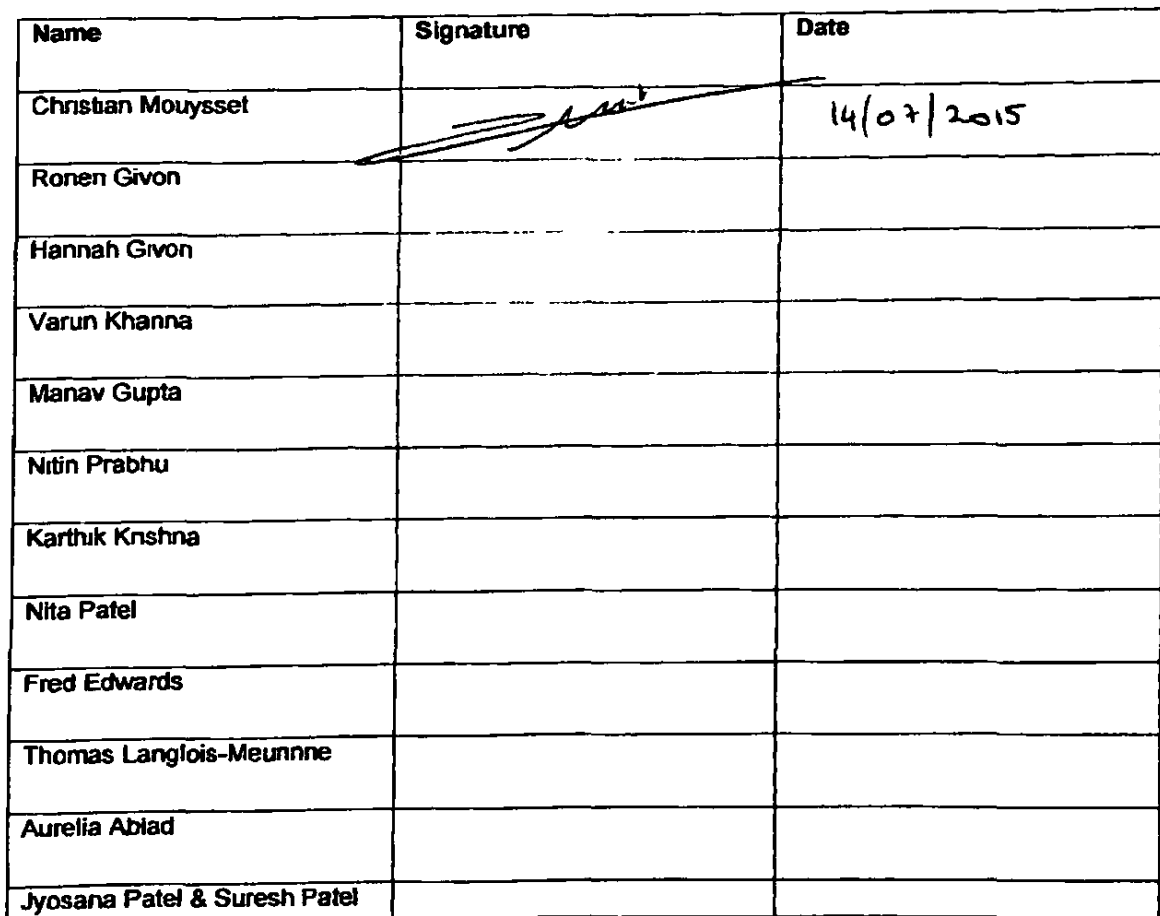 Name Signature Date
Christian Mouysset 14/07/2015
Ronen Givon
Hannah Givon
Varun Khanna
Manav Gupta
Nitin Prabhu
Karthik Krishna
Nita Patel
Fred Edwards
Thomas Langlois-Meurinne
Aurelia Abiad
Jyosana Patel & Suresh Patel